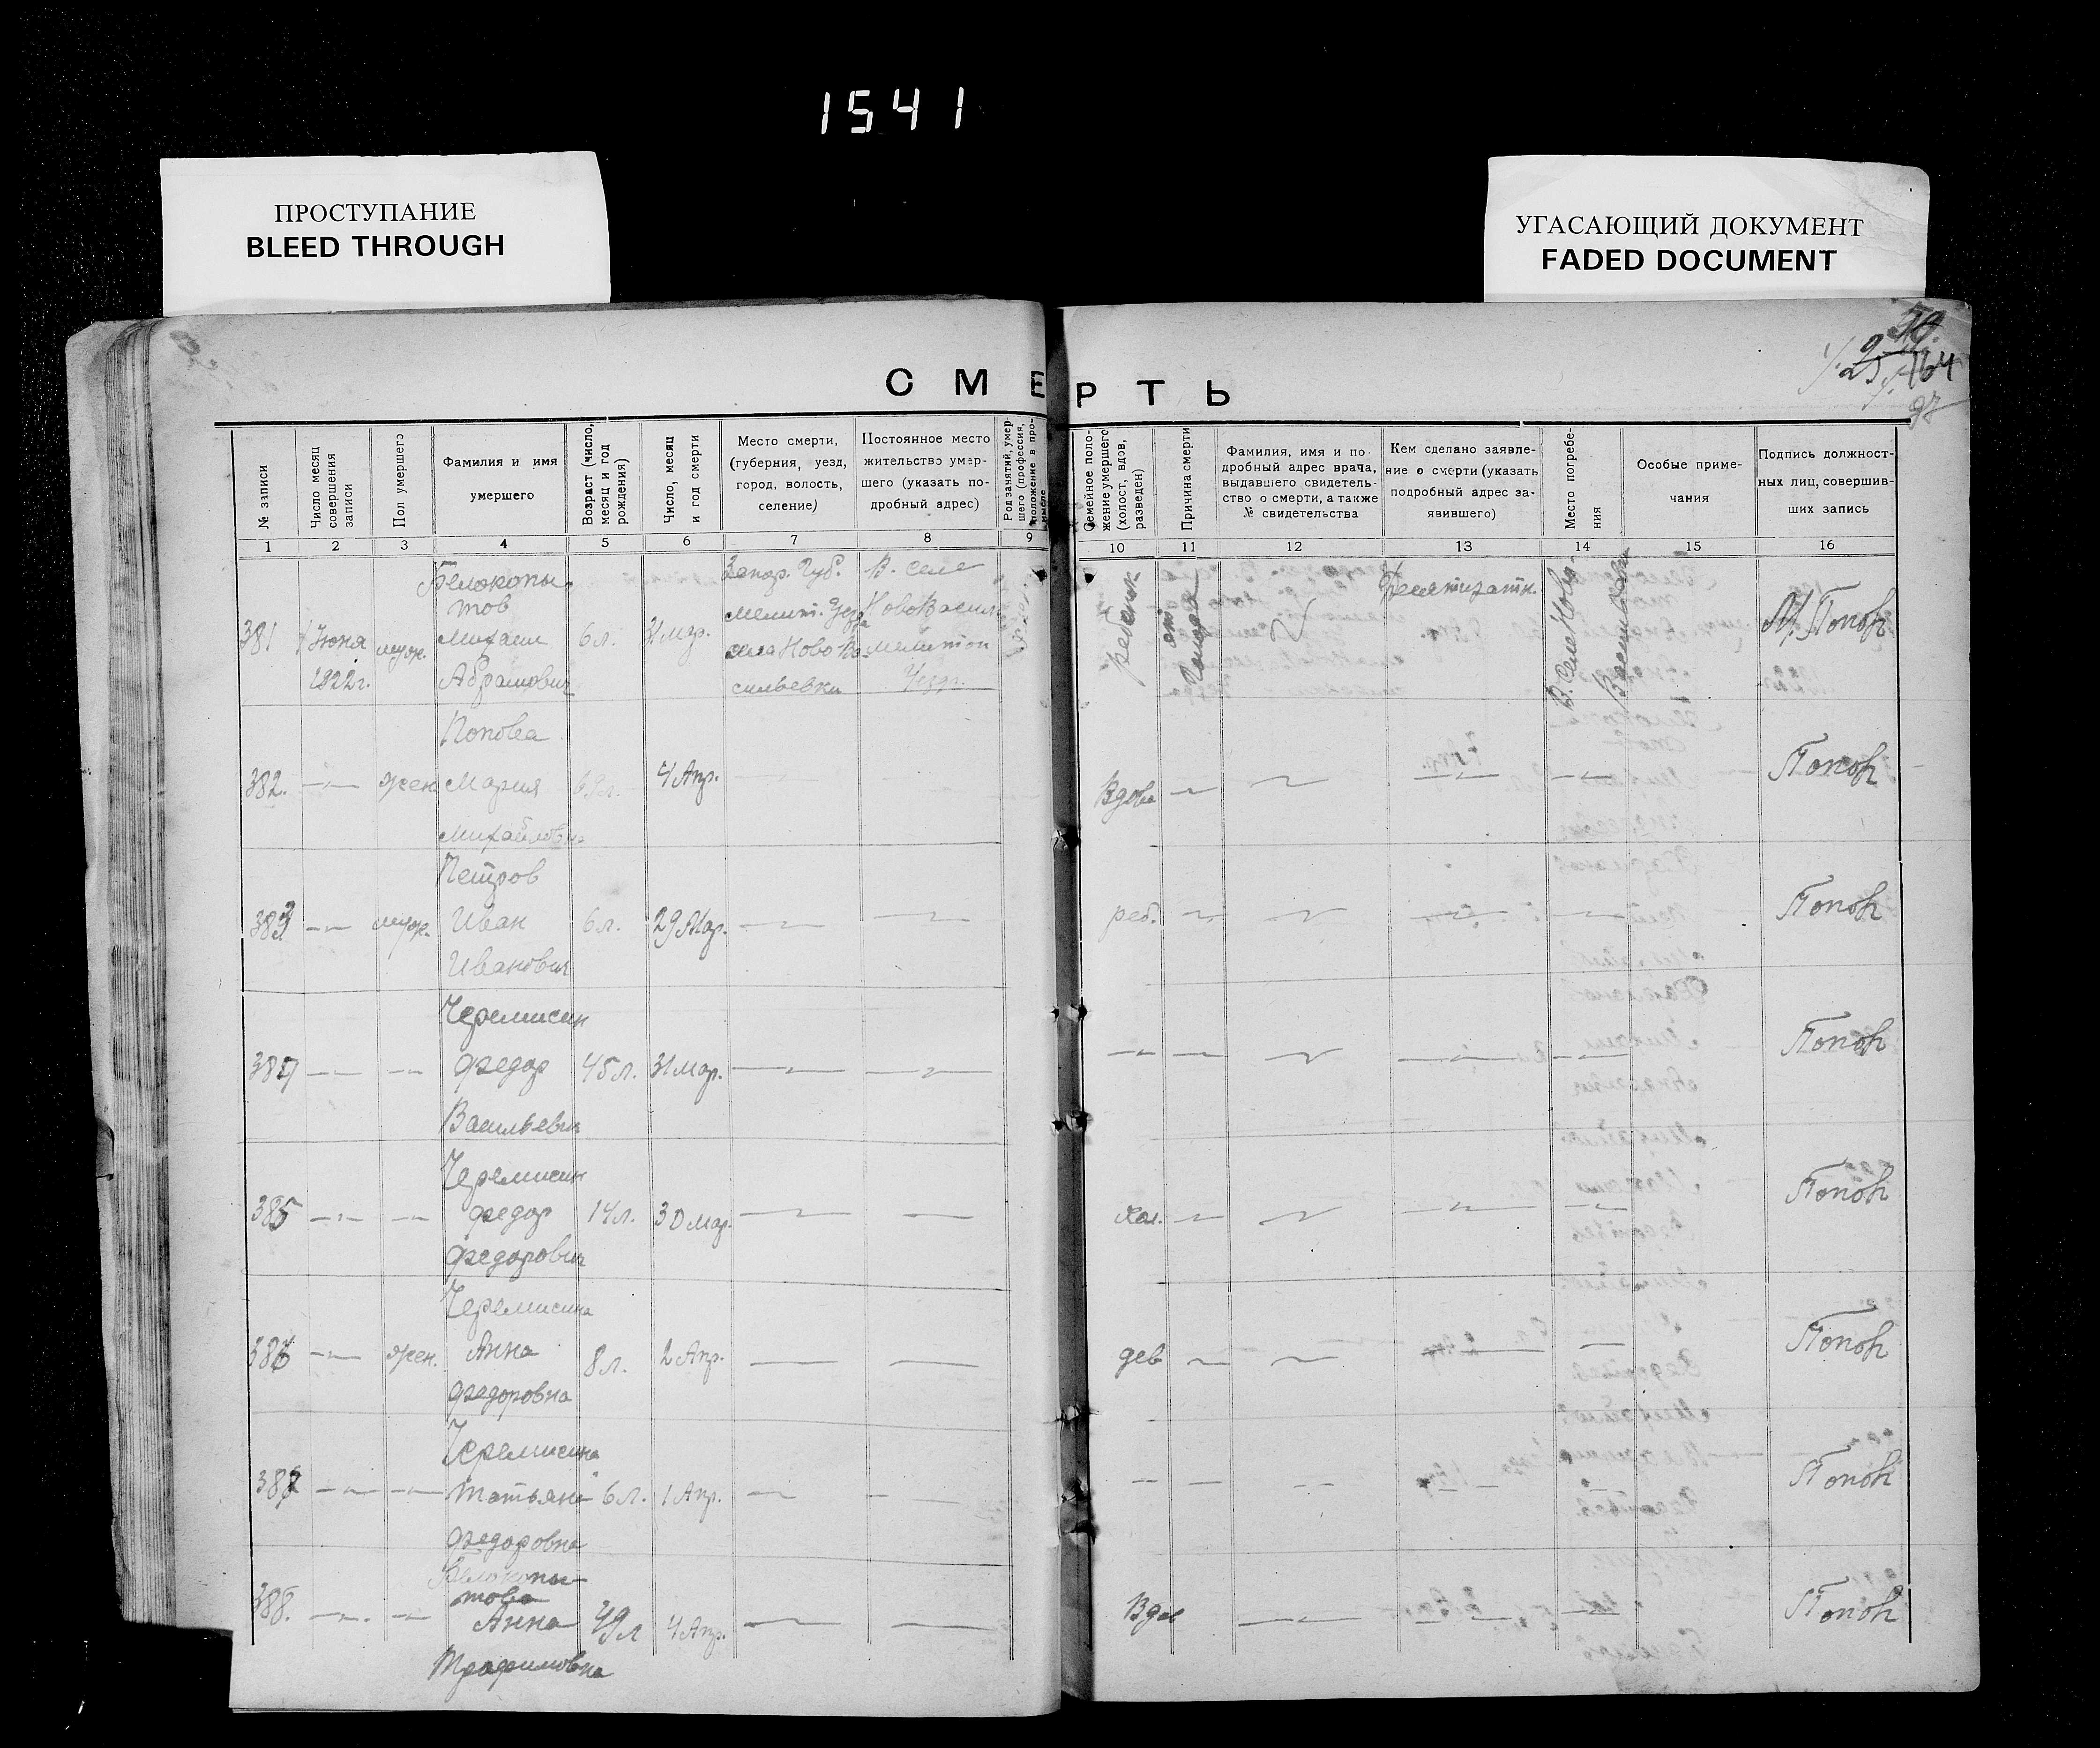 1541
ПРОСТУПАНИЕ
BLEED THROUGH
УГАСАЮЩИЙ ДОКУМЕНТ
FADED DOCUMENT
64
97
СМЕРТЬ
№ записи
Число месяц совершения записи
Пол умершего
Фамилия и имя умершего
Возраст (число, месяц и год рождения)
Число, месяц и год смерти
Место смерти, (губерния, уезд, город, волость, селение)
Постоянное место жительства умершего (указать подробный адрес)
Род занятий, умершего (профессия, положение в промысле
Семейное положение умершего (холост, вдов, разведен)
Причина смерти
Фамилия, имя и подробный адрес врача, выдавшего свидетельство о смерти, а также № свидетельства
Кем сделано заявление о смерти (указать подробный адрес заявившего)
Место погребения
Особые примечания
Подпись должностных лиц, совершивших запись
1 2 3 4 5 6 7 8 9 10 11 12 13 14 15 16
381 1 Июня 1922 г. муж. Белокопытов Михаил Абрамович 6 л. 31 Мар. Запор. Губ. Мелит. Уезда села Ново Васильевки В. селе Ново Васил Мелитоп Уезд. ребенок от Голода В. Селе Ново Васильевки М. Попов
382. — жен Попова Мария Михайловна 4 Апр. Вдова — — — — Попов
383 — муж. Петров Иван Иванович 6 л. 29 Мар. — — реб. — — — — Попов
384 — — Черемисин Федор Васильевич 45 л. 31 Мар. — — — — — — — Попов
385 — — Черемисин Федор Федорович 14 л. 30 Мар. — — хол. — — — — Попов
386 — жен. Черемисина Анна Федоровна 8 л. 2 Апр. — — дев — — — — Попов
387 — — Черемисина Татьяна Федоровна 6 л. 1 Апр. — — — — — — Попов
388. — — Белокопытова Анна Трофимовна 49 л 4 Апр. — — Вдов — — — Попов